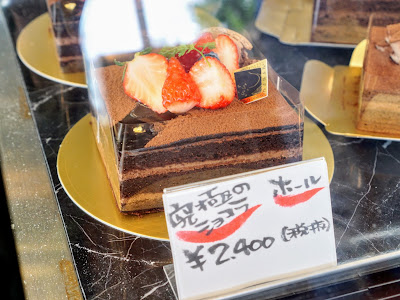 究極の
ショコラ
ホール
¥2.400(税抜)